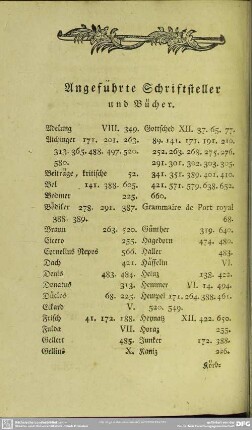 Angeführte Schriftsteller
und Bücher.
Adelung VIII. 349.
Aichinger 171. 201. 263.
313. 365. 488. 497. 520.
580.
Beiträge, kritische 52.
Bel 141. 388. 625.
Bodmer 225.
Bödiker 278. 291. 387.
388. 389.
Braun 263. 520.
Cicero 255.
Cornelius Nepos 566.
Dach 421.
Denis 483. 484.
Donatus 313.
Dücles 68. 225.
Eckard V.
Frisch 41. 172. 188.
Fulda VII.
Gellert 485.
Gellius X.
Gottsched XII. 37. 65. 77.
89. 141. 171. 191. 210.
252. 263. 268. 275. 276.
291. 301. 302. 303. 305.
341. 351. 389. 401. 410.
421. 571. 579. 638. 652.
660.
Grammaire de Port royal
68.
Günther 319. 640.
Hagedorn 474. 480.
Haller 483.
Häffelin VI.
Heinz 138. 422.
Hemmer VI. 14. 494.
Hempel 171. 264. 388. 461.
520. 549.
Heynatz XII. 422. 650.
Horaz 255.
Junker 172. 388.
Kanitz 226.
Körbe